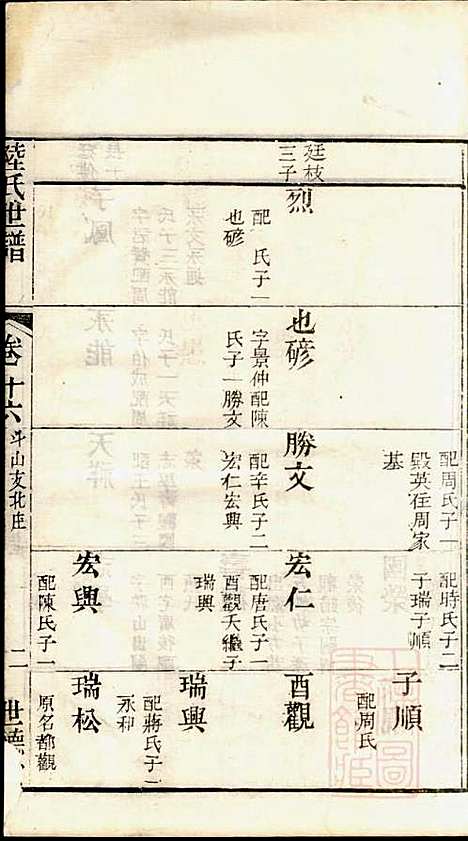 廷枝
三子
烈
配　氏子一
也碜
也碜
字景仲配陳
氏子一勝文
配周氏子一
毀英在周家
基
勝文
配辛氏子二
宏仁宏興
配時氏子二
子瑞子順
宏仁
配唐氏子一
酉觀夭繼子
瑞興
宏興
配陳氏子一
子順
配周氏
酉觀
瑞興
配蔣氏子二
永和
瑞松
原名都觀
陸氏世譜
卷十六
斗山支北庄
二
世德